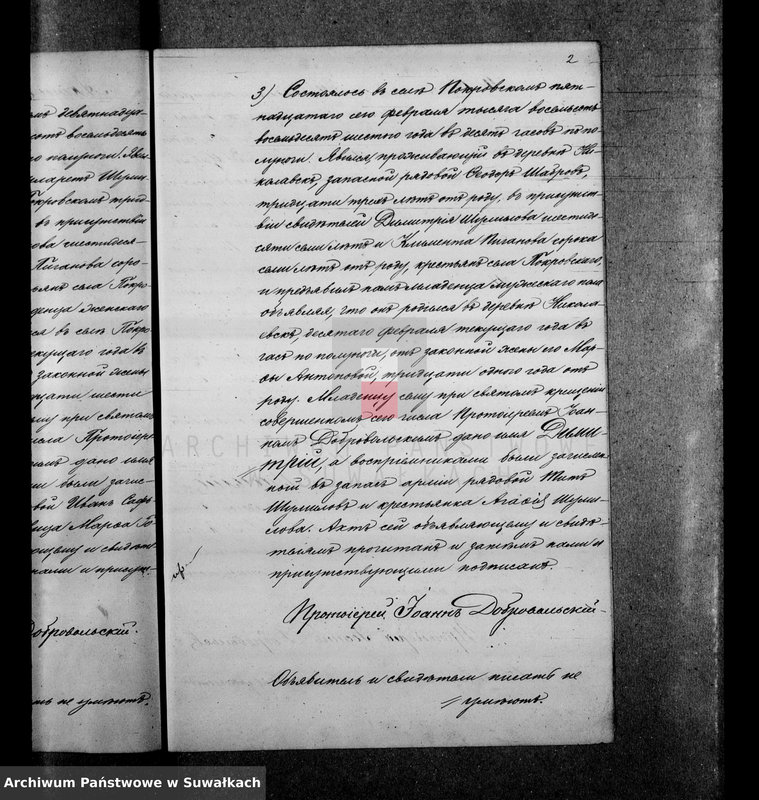 2
3) Состоялось въ селѣ Покровскомъ пят-
надцатаго сего февраля тысяча восемьсотъ
восемьдесятъ шестого года въ десять часовъ по по-
луночи. Явился проживающій въ деревнѣ Ни-
колаевскъ, запасной рядовой Ѳеодоръ Шабровъ,
тридцати трехъ лѣтъ отъ роду, въ присутст-
віи свидѣтелей Димитрія Шурмилова шестиде-
сяти семи лѣтъ и Климента Пиганова сорока
семи лѣтъ отъ роду, крестьянъ села Покровскаго,
и предъявилъ намъ младенца мужескаго пола
объявляя, что онъ родился въ деревнѣ Никола-
евскъ, десятаго февраля текущаго года въ
часъ по полуночи, отъ законной жены его Мар-
ѳы Антоновой, тридцати одного года отъ
роду. Младенцу сему при святомъ крещеніи
совершенномъ сего числа Протоіереемъ Іоан-
номъ Добровольскимъ дано имя Дими-
трій, а воспріемниками были зачислен-
ный въ запасъ арміи рядовой Титъ
Шурмиловъ и крестьянка Агаѳія Шурми-
лова. Актъ сей объявляющему и свидѣ-
телямъ прочитанъ и затѣмъ нами и
присутствующими подписанъ.
Протоіерей Іоаннъ Добровольскій
Объявитель и свидѣтели писать не
умѣютъ.
мъ девятнадца-
сотъ восемьдесятъ
по полуночи. Яви-
Покровскомъ трид-
въ присутствіи
ова шестидеся-
Пиганова соро-
янъ села Покро-
денца женскаго
ся въ селѣ Покр
екущаго года въ
законной жены
дцати шести
му при святомъ
сла Протоіер
мъ дано имя
и были зачис-
вой Иванъ Саф
вица Марѳа Го
ющему и свидѣт
нами и присут-
Добровольскій.
ть не умѣютъ.
ARCHIWUM PAŃSTWOWE
W SUWAŁKACH
Archiwum Państwowe w Suwałkach